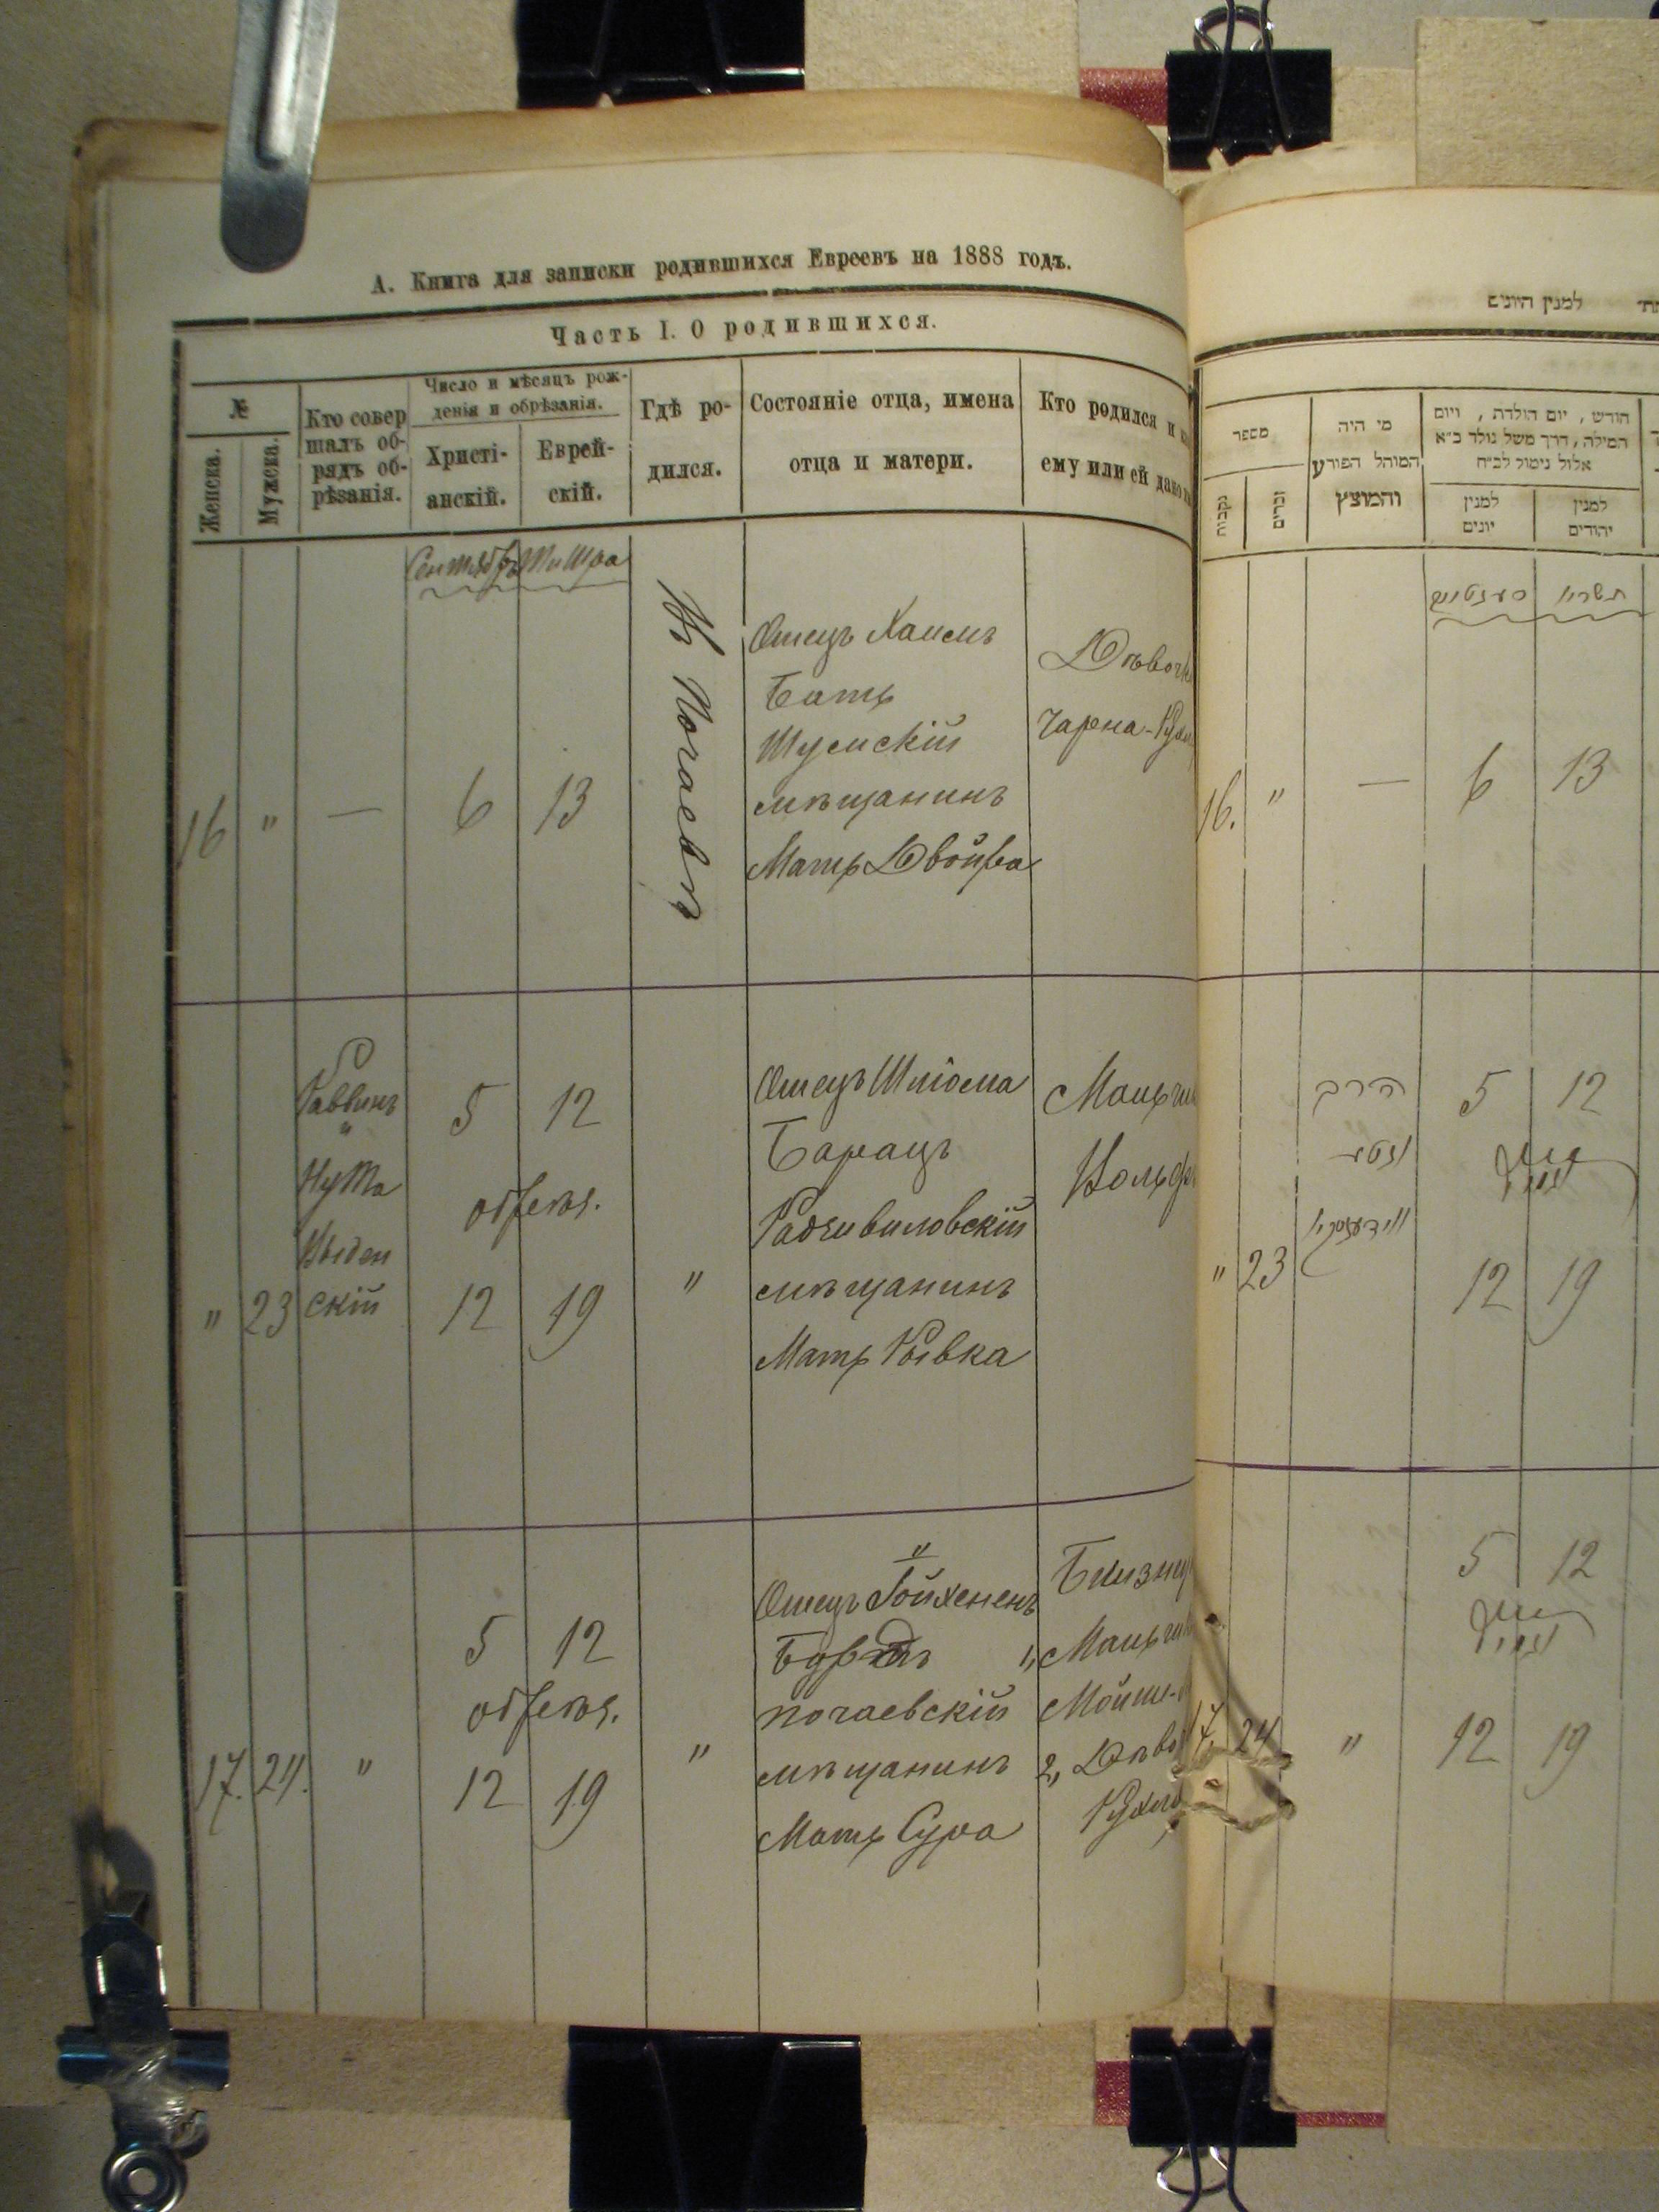 А. Книга для записки родившихся Евреевъ на 1888 годъ.
Часть I. О родившихся.
№
Женска.
Мужска.
Кто совер
шалъ об-
рядъ об-
рѣзанія.
Число и мѣсяцъ рож-
денія и обрѣзанія.
Христі-
анскій.
Еврей-
скій.
Гдѣ ро-
дился.
Состояніе отца, имена
отца и матери.
Кто родился и
ему или ей дано
Сентябрь Тишра
16 " — 6 13
Въ Почаевѣ
Отецъ Хаимъ
Батъ
Шумскій
мѣщанинъ
Матрь Двойра
Дѣвочк
Чарна-
" 23
Раввинъ
"
Нута
Выден
скій
5 12
обрѣз.
12 19
"
Отецъ Шлiома
Барацъ
Радзивиловскій
мѣщанинъ
Матрь Рывка
Мальчи
Вольф
17. 24. "
5 12
обрѣз.
12 19
"
"
Отецъ Гойхененъ
почаевскій
мѣщанинъ
Матрь Сура
Близн
1, Мальчи
Мойше-
2, Дѣво
Рухл
למנין היונים
מספר
נקבות
זכרים
מי היה
המוהל הפורע
והמוצץ
חודש, יום הולדת, ויום
המילה, דרך משל נולד כ״א
אלול נימול לכ״ח
למנין
יונים
למנין
יהודים
תשרי
16. " — 6 13
" 23
הרב
נטע
5 12
12 19
5 12
17. 24 " 12 19